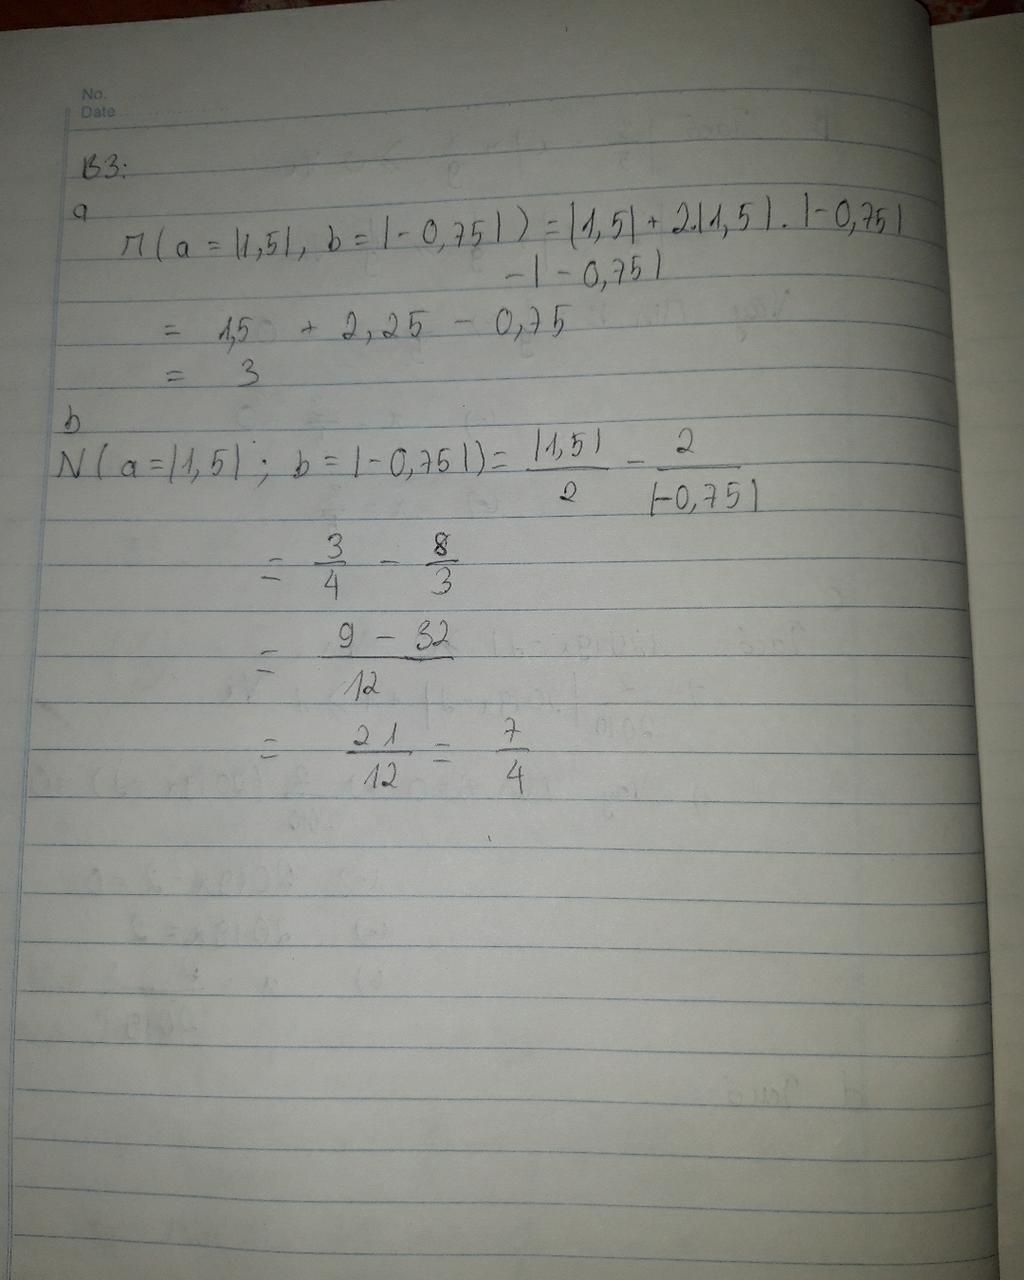 No.
Date
B3:
a
M(a = |1,5|, b = |-0,75|) = |1,5| + 2.|1,5|.|-0,75|
-|-0,75|
= 1,5 + 2,25 - 0,75
= 3
b
N(a = |1,5|; b = |-0,75|) = |1,5|/2 - 2/|-0,75|
= 3/4 - 8/3
= (9 - 32)/12
= 21/12 = 7/4